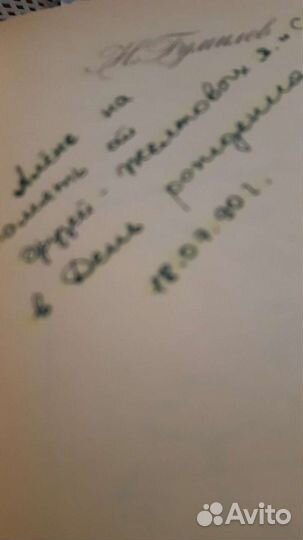 Н. Гумилев
Алёне на
память от
друзей - Желтовых Я. и С
в День рождения
18.07.90 г.
Avito